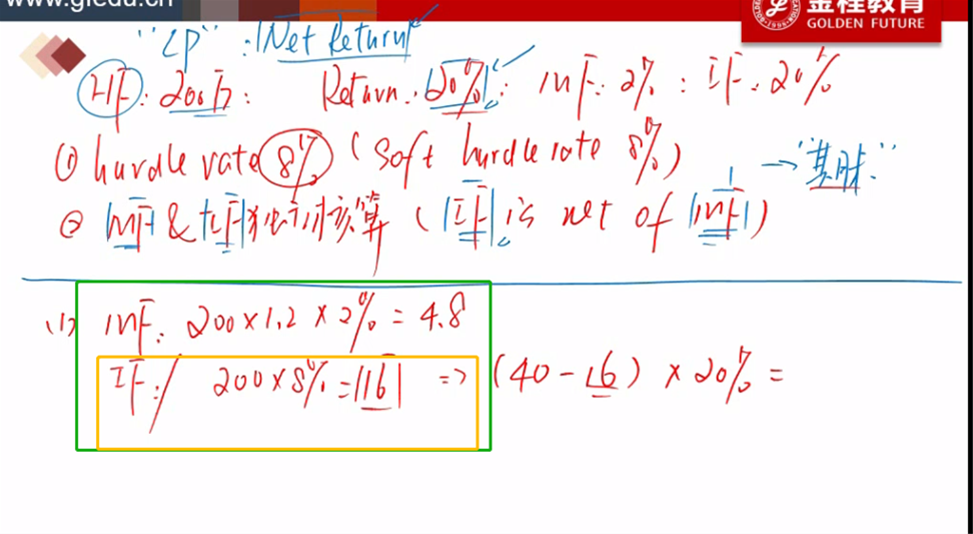 www.gfedu.cn
金程教育
GOLDEN FUTURE
"LP": Net Return
HF: 200万: Return: 20%. MF: 2%: IF: 20%
① hurdle rate 8% (soft hurdle rate 8%)
② MF & IF 独立计算 (IF is net of MF) →"其财."
(1) MF: 200×1.2×2% = 4.8
IF: 200×8% = 16 => (40-16)×20% =